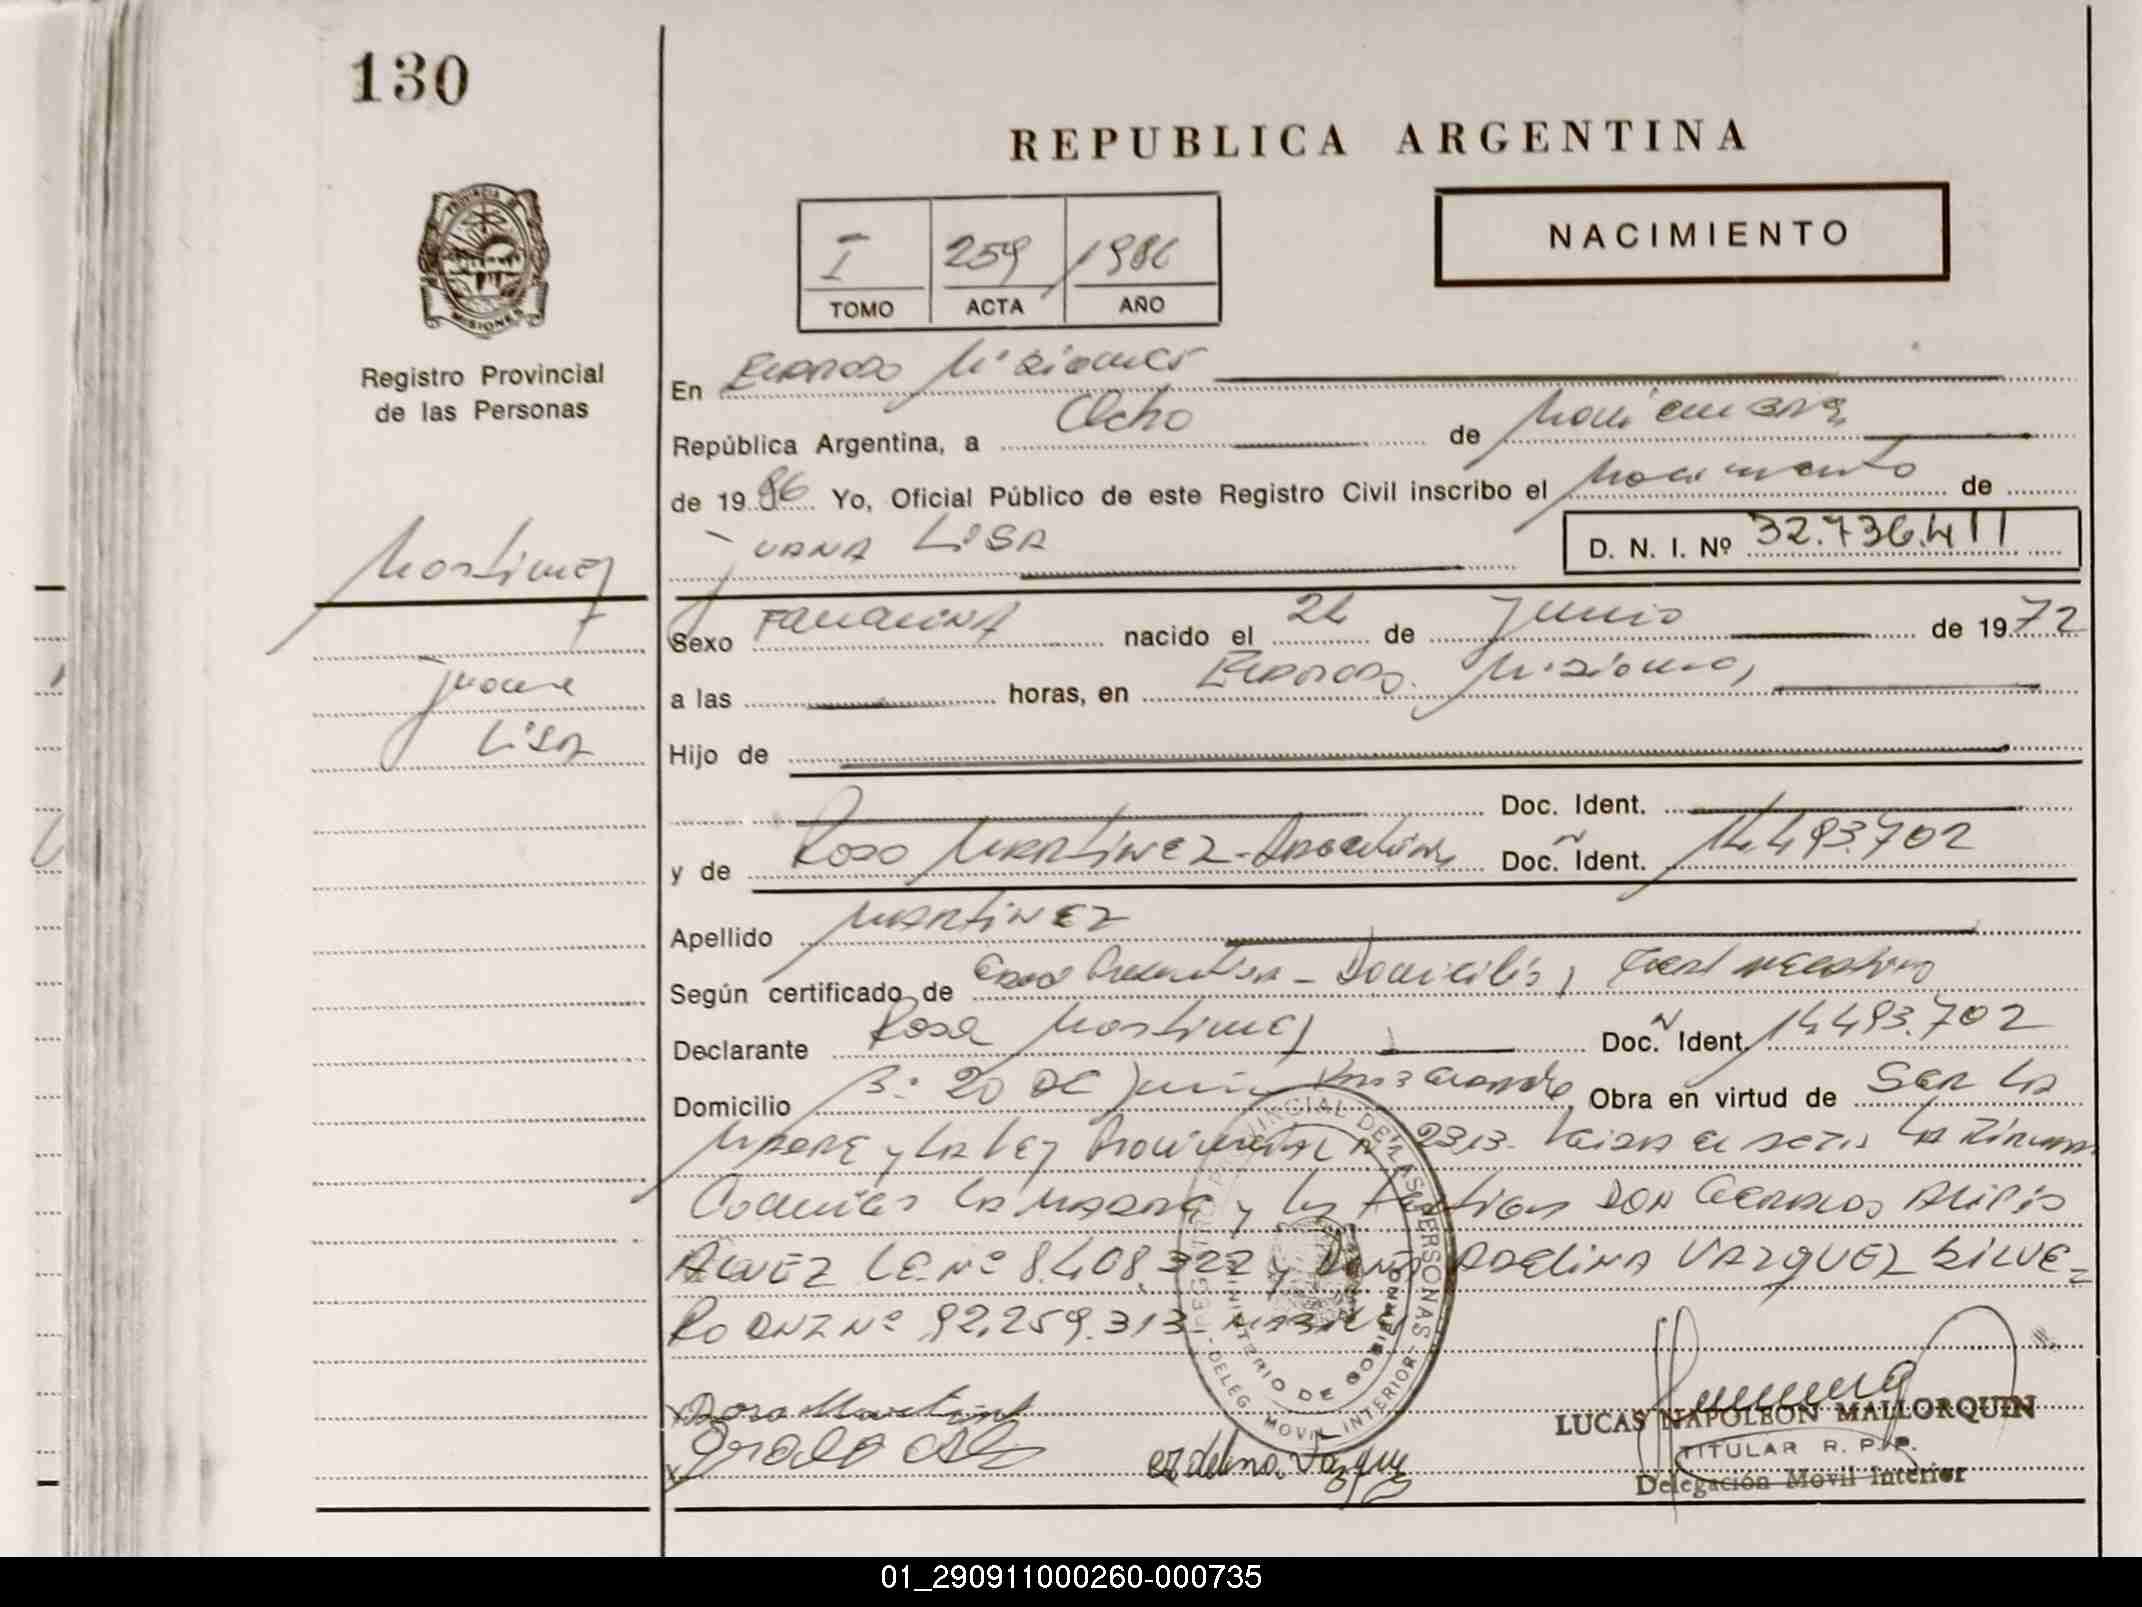 130
REPUBLICA ARGENTINA
PROVINCIA DE
MISIONES
Registro Provincial
de las Personas
NACIMIENTO
I 259 1986
TOMO ACTA AÑO
En Eldorado Misiones
República Argentina, a Ocho de Noviembre
de 1986 Yo, Oficial Público de este Registro Civil inscribo el Nacimiento de
Juana Lisa D. N. I. Nº 32.736.411
Martinez
Juana
Lisa
Sexo Femenina nacido el 24 de Junio de 1972
a las horas, en Eldorado. Misiones
Hijo de
Doc. Ident.
y de Rosa Martinez - Argentina Doc. Ident. 14.493.702
Apellido MARTINEZ
Según certificado de Domicilio,
Declarante Rosa Martinez Doc. Ident. 14.493.702
Domicilio Bº 20 de Junio Obra en virtud de Ser la
Madre y la Ley Provincial Nº 2313. Leida el acta la firman
la madre y los testigos DON Alipio
ALVEZ LE. Nº 8.408.322 y Doña ADELINA VAZQUEZ SILVE-
RO DNI Nº 92.259.313.
Rosa Martinez
Adelina Vazquez
REGISTRO PROVINCIAL DE LAS PERSONAS
MINISTERIO DE GOBIERNO
DELEG MOVIL INTERIOR
LUCAS NAPOLEON MALLORQUIN
TITULAR R. P. P.
Delegación Movil Interior
01_290911000260-000735